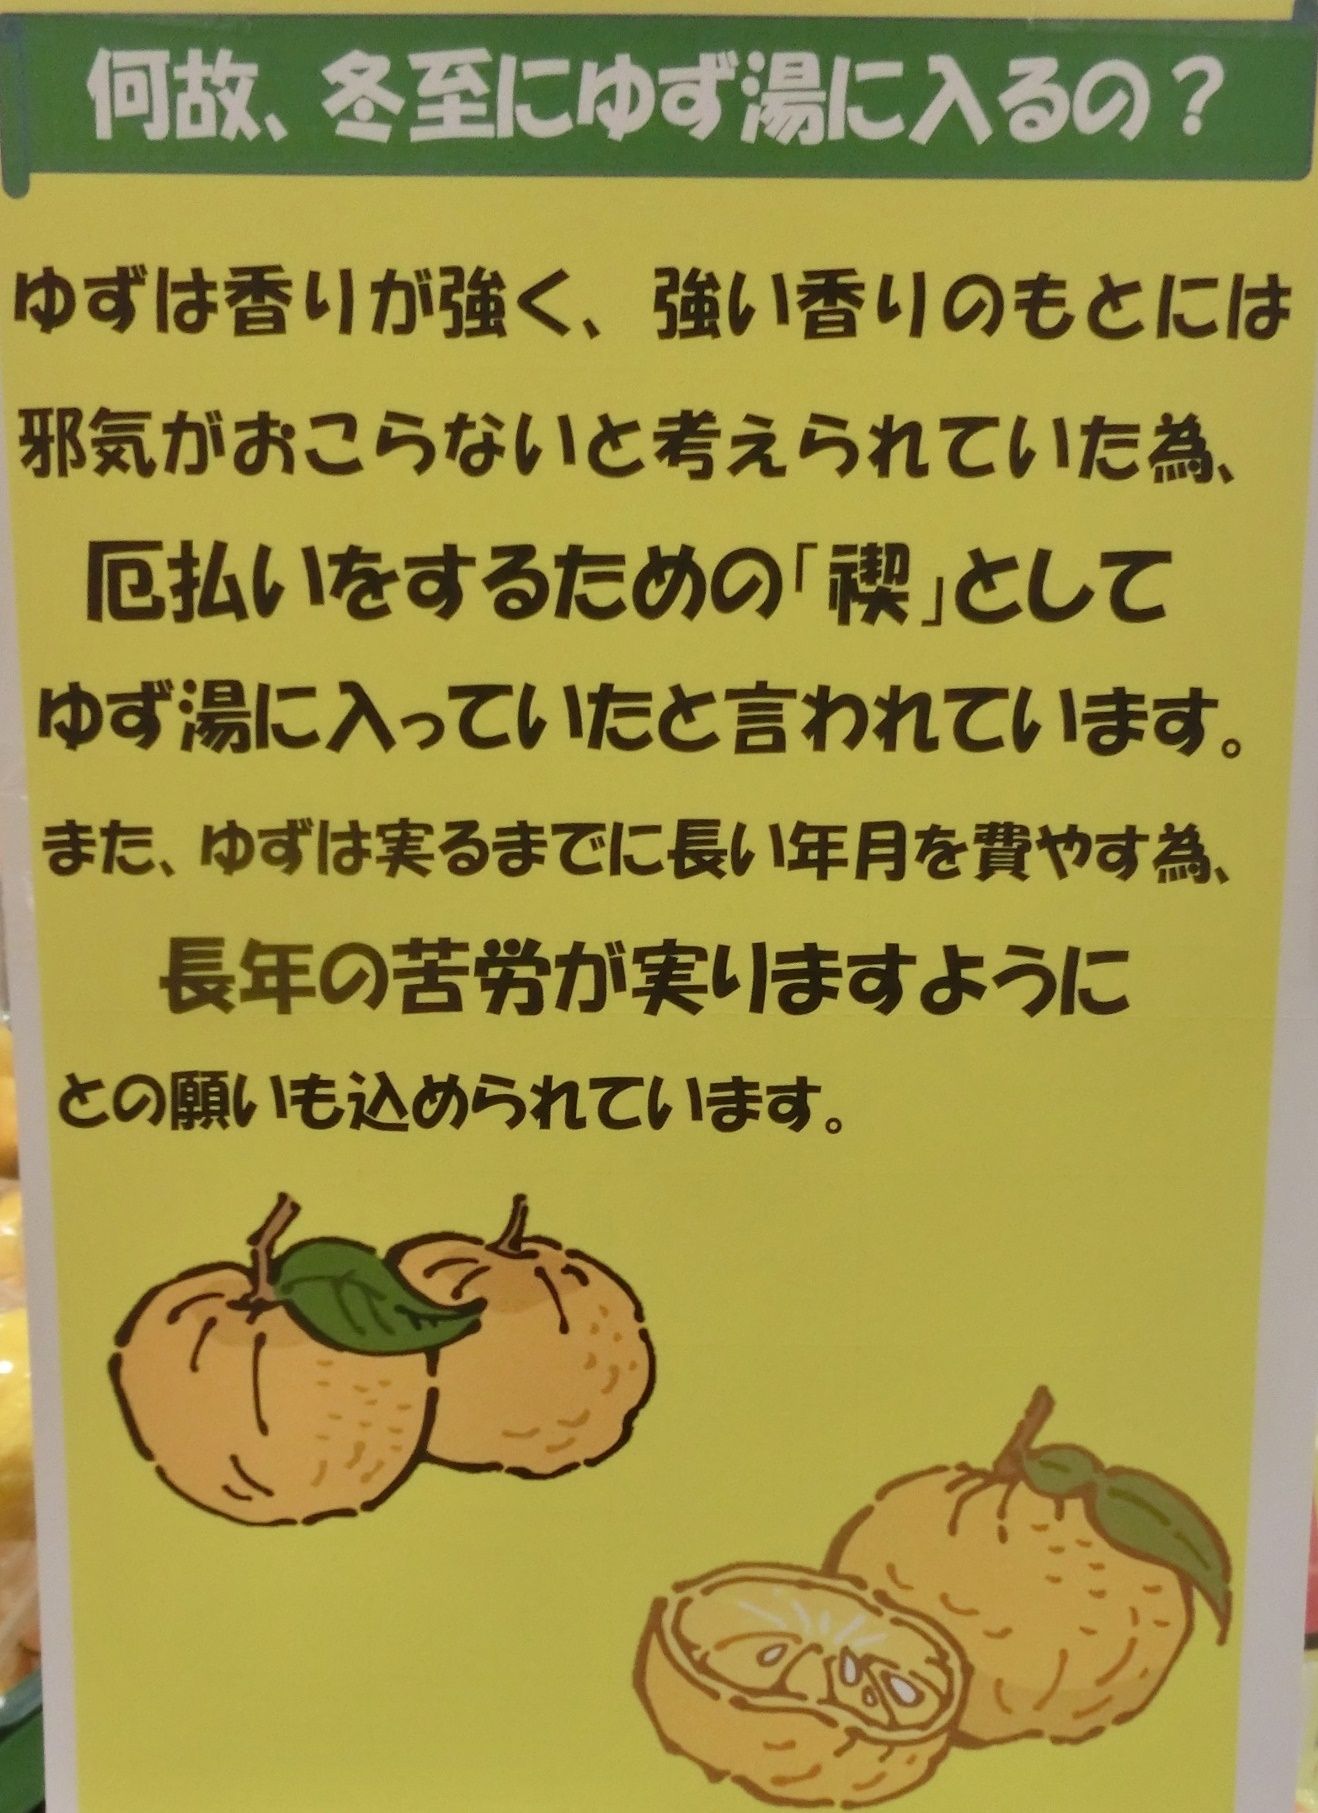 何故、冬至にゆず湯に入るの？
ゆずは香りが強く、強い香りのもとには
邪気がおこらないと考えられていた為、
厄払いをするための「禊」として
ゆず湯に入っていたと言われています。
また、ゆずは実るまでに長い年月を費やす為、
長年の苦労が実りますように
との願いも込められています。